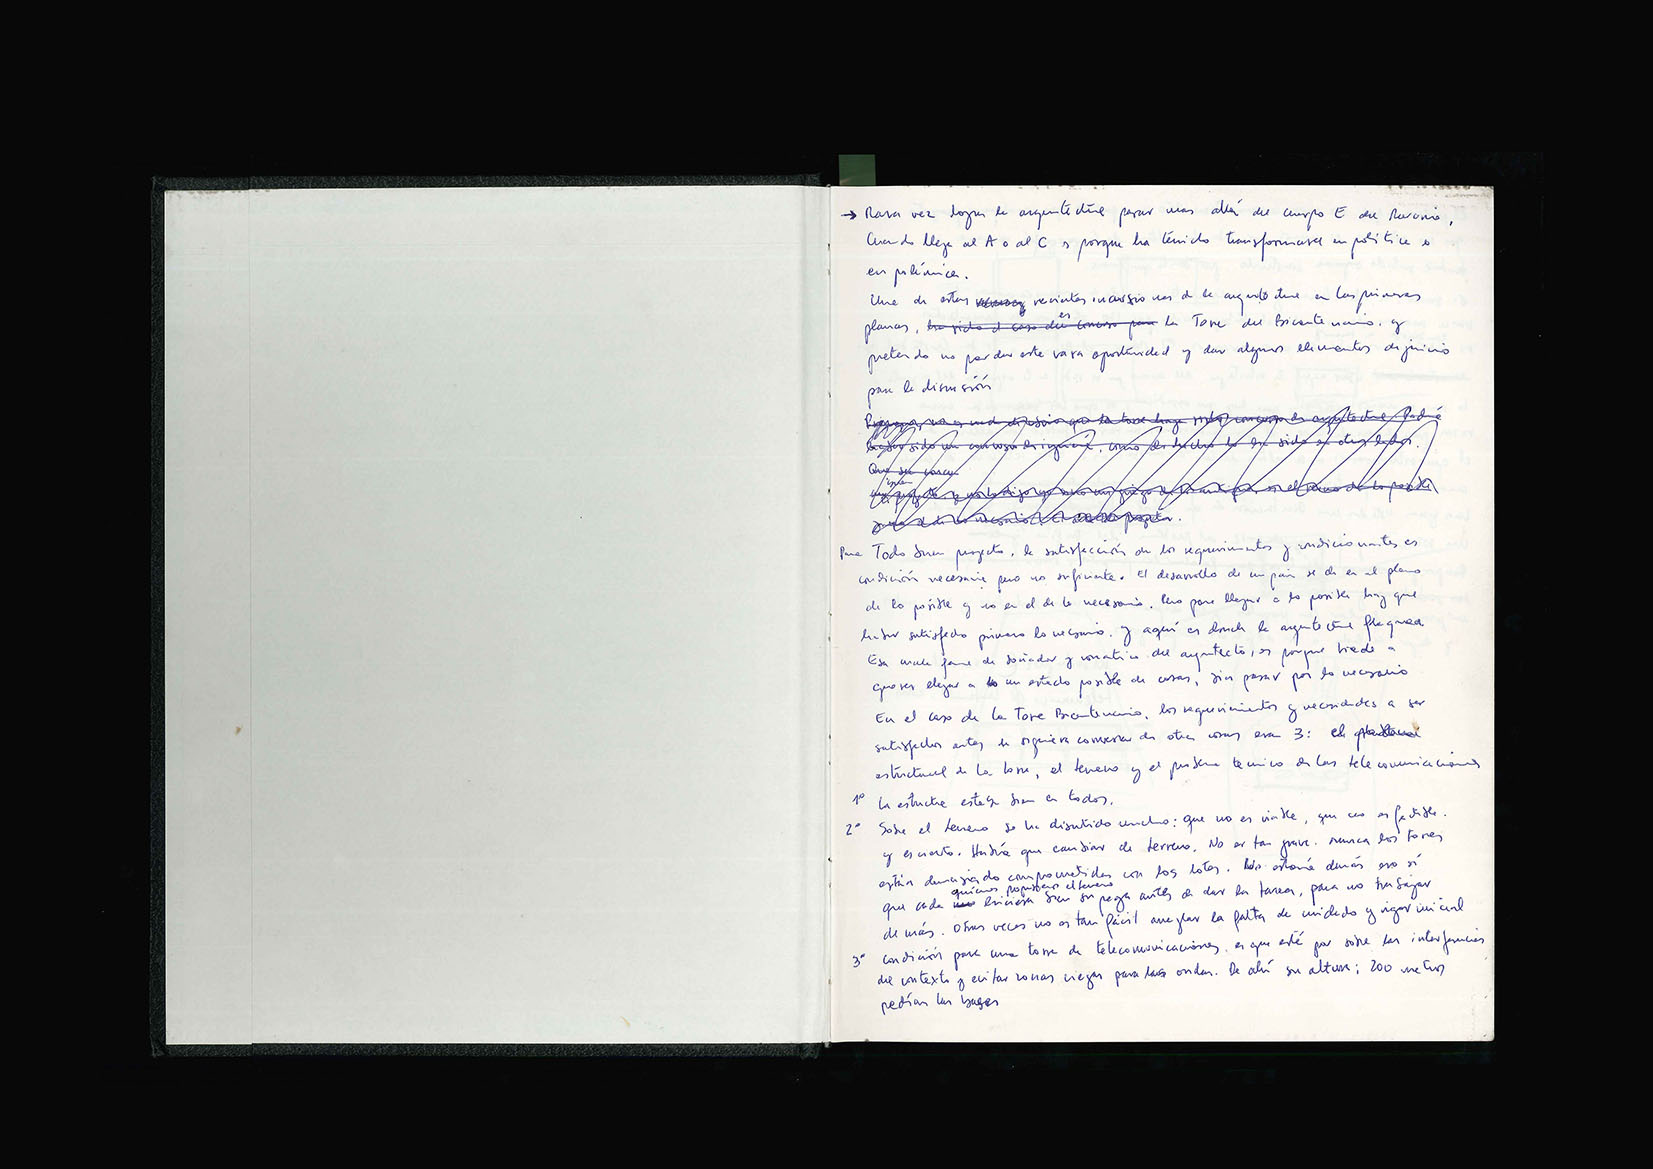 → Rara vez logra la arquitectura pasar mas allá del cuerpo E del Mercurio.
Cuando llega al A o al C es porque ha tenido transformarse en política o
en polémica.
Una de estas recientes incursiones de la arquitectura en las primeras
planas, es la Torre del Bicentenario. y
pretendo no perder esta rara oportunidad y dar algunos elementos de juicio
para la discusión
haber sido un concurso de ingeniería, como de hecho lo ha sido en otros lados.
Para Todo buen proyecto, la satisfacción de los requerimientos y condicionantes es
condición necesaria pero no suficiente. El desarrollo de un país se da en el plano
de lo posible y no en el de lo necesario. Pero para llegar a lo posible hay que
haber satisfecho primero lo necesario. y aquí es donde la arquitectura flaquea
Esa mala fama de soñador y lunático del arquitecto, es porque tiende a
querer llegar a un estado posible de cosas, sin pasar por lo necesario
En el caso de la Torre Bicentenario, los requerimientos y necesidades a ser
satisfechos antes de siquiera conversar de otras cosas eran 3: el
estructural de la torre, el terreno y el problema tecnico de las telecomunicaciones
1º La estructura estaba bien en todos.
2º Sobre el terreno se ha discutido mucho: que no es viable, que no es factible.
y es cierto. Habría que cambiar de terreno. No es tan grave. nunca las torres
están demasiado comprometidas con los lotes. No estaría demás eso sí
quienes propusieron el terreno
que cada hiciera bien su pega antes de dar la tarea, para no trabajar
de más. Otras veces no es tan fácil arreglar la falta de cuidado y rigor inicial
3º condición para una torre de telecomunicaciones. es que esté por sobre las interferencias
del contexto y evitar zonas ciegas para las ondas. De ahí su altura; 200 metros
pedían las bases